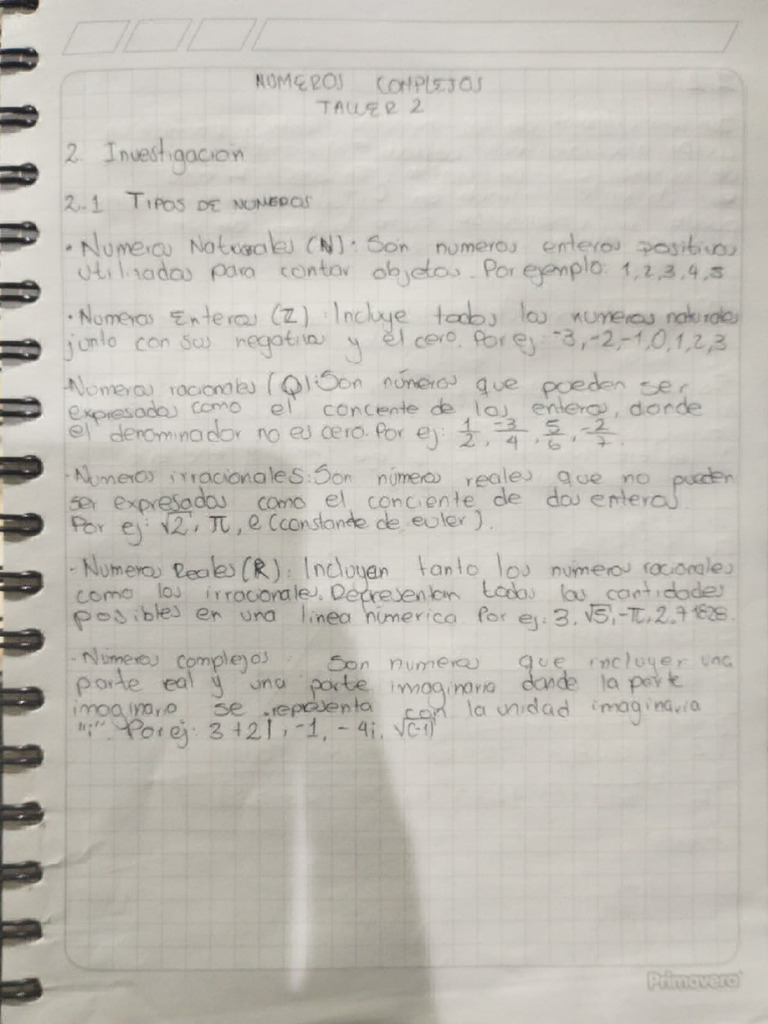 NUMEROS COMPLEJOS
TALLER 2
2. Investigacion
2.1 TIPOS DE NUMEROS
· Numeros Naturales (N): Son numeros enteros positivos
utilizados para contar objetos. Por ejemplo: 1,2,3,4,5
· Numeros Enteros (Z): Incluye todos los numeros naturales
junto con sus negativos y el cero. Por ej: -3,-2,-1,0,1,2,3
·Numeros racionales (Q): Son números que pueden ser
expresados como el conciente de los enteros, donde
el denominador no es cero. Por ej: 1/2, -3/4, 5/6, -2/7.
· Numeros irracionales: Son números reales que no pueden
ser expresados como el conciente de dos enteros.
Por ej: √2, π, e (constande de euler).
· Numeros Reales (R): Incluyen tanto los numeros racionales
como los irracionales. Representan todas las cantidades
posibles en una linea númerica. Por ej: 3, √5, -π, 2.71828.
· Números complejos: Son numeros que incluyer una
parte real y una parte imaginaria donde la parte
imaginario se representa con la unidad imaginaria
"i". Por ej: 3+2i, -1, -4i, √(-1)
Primavera